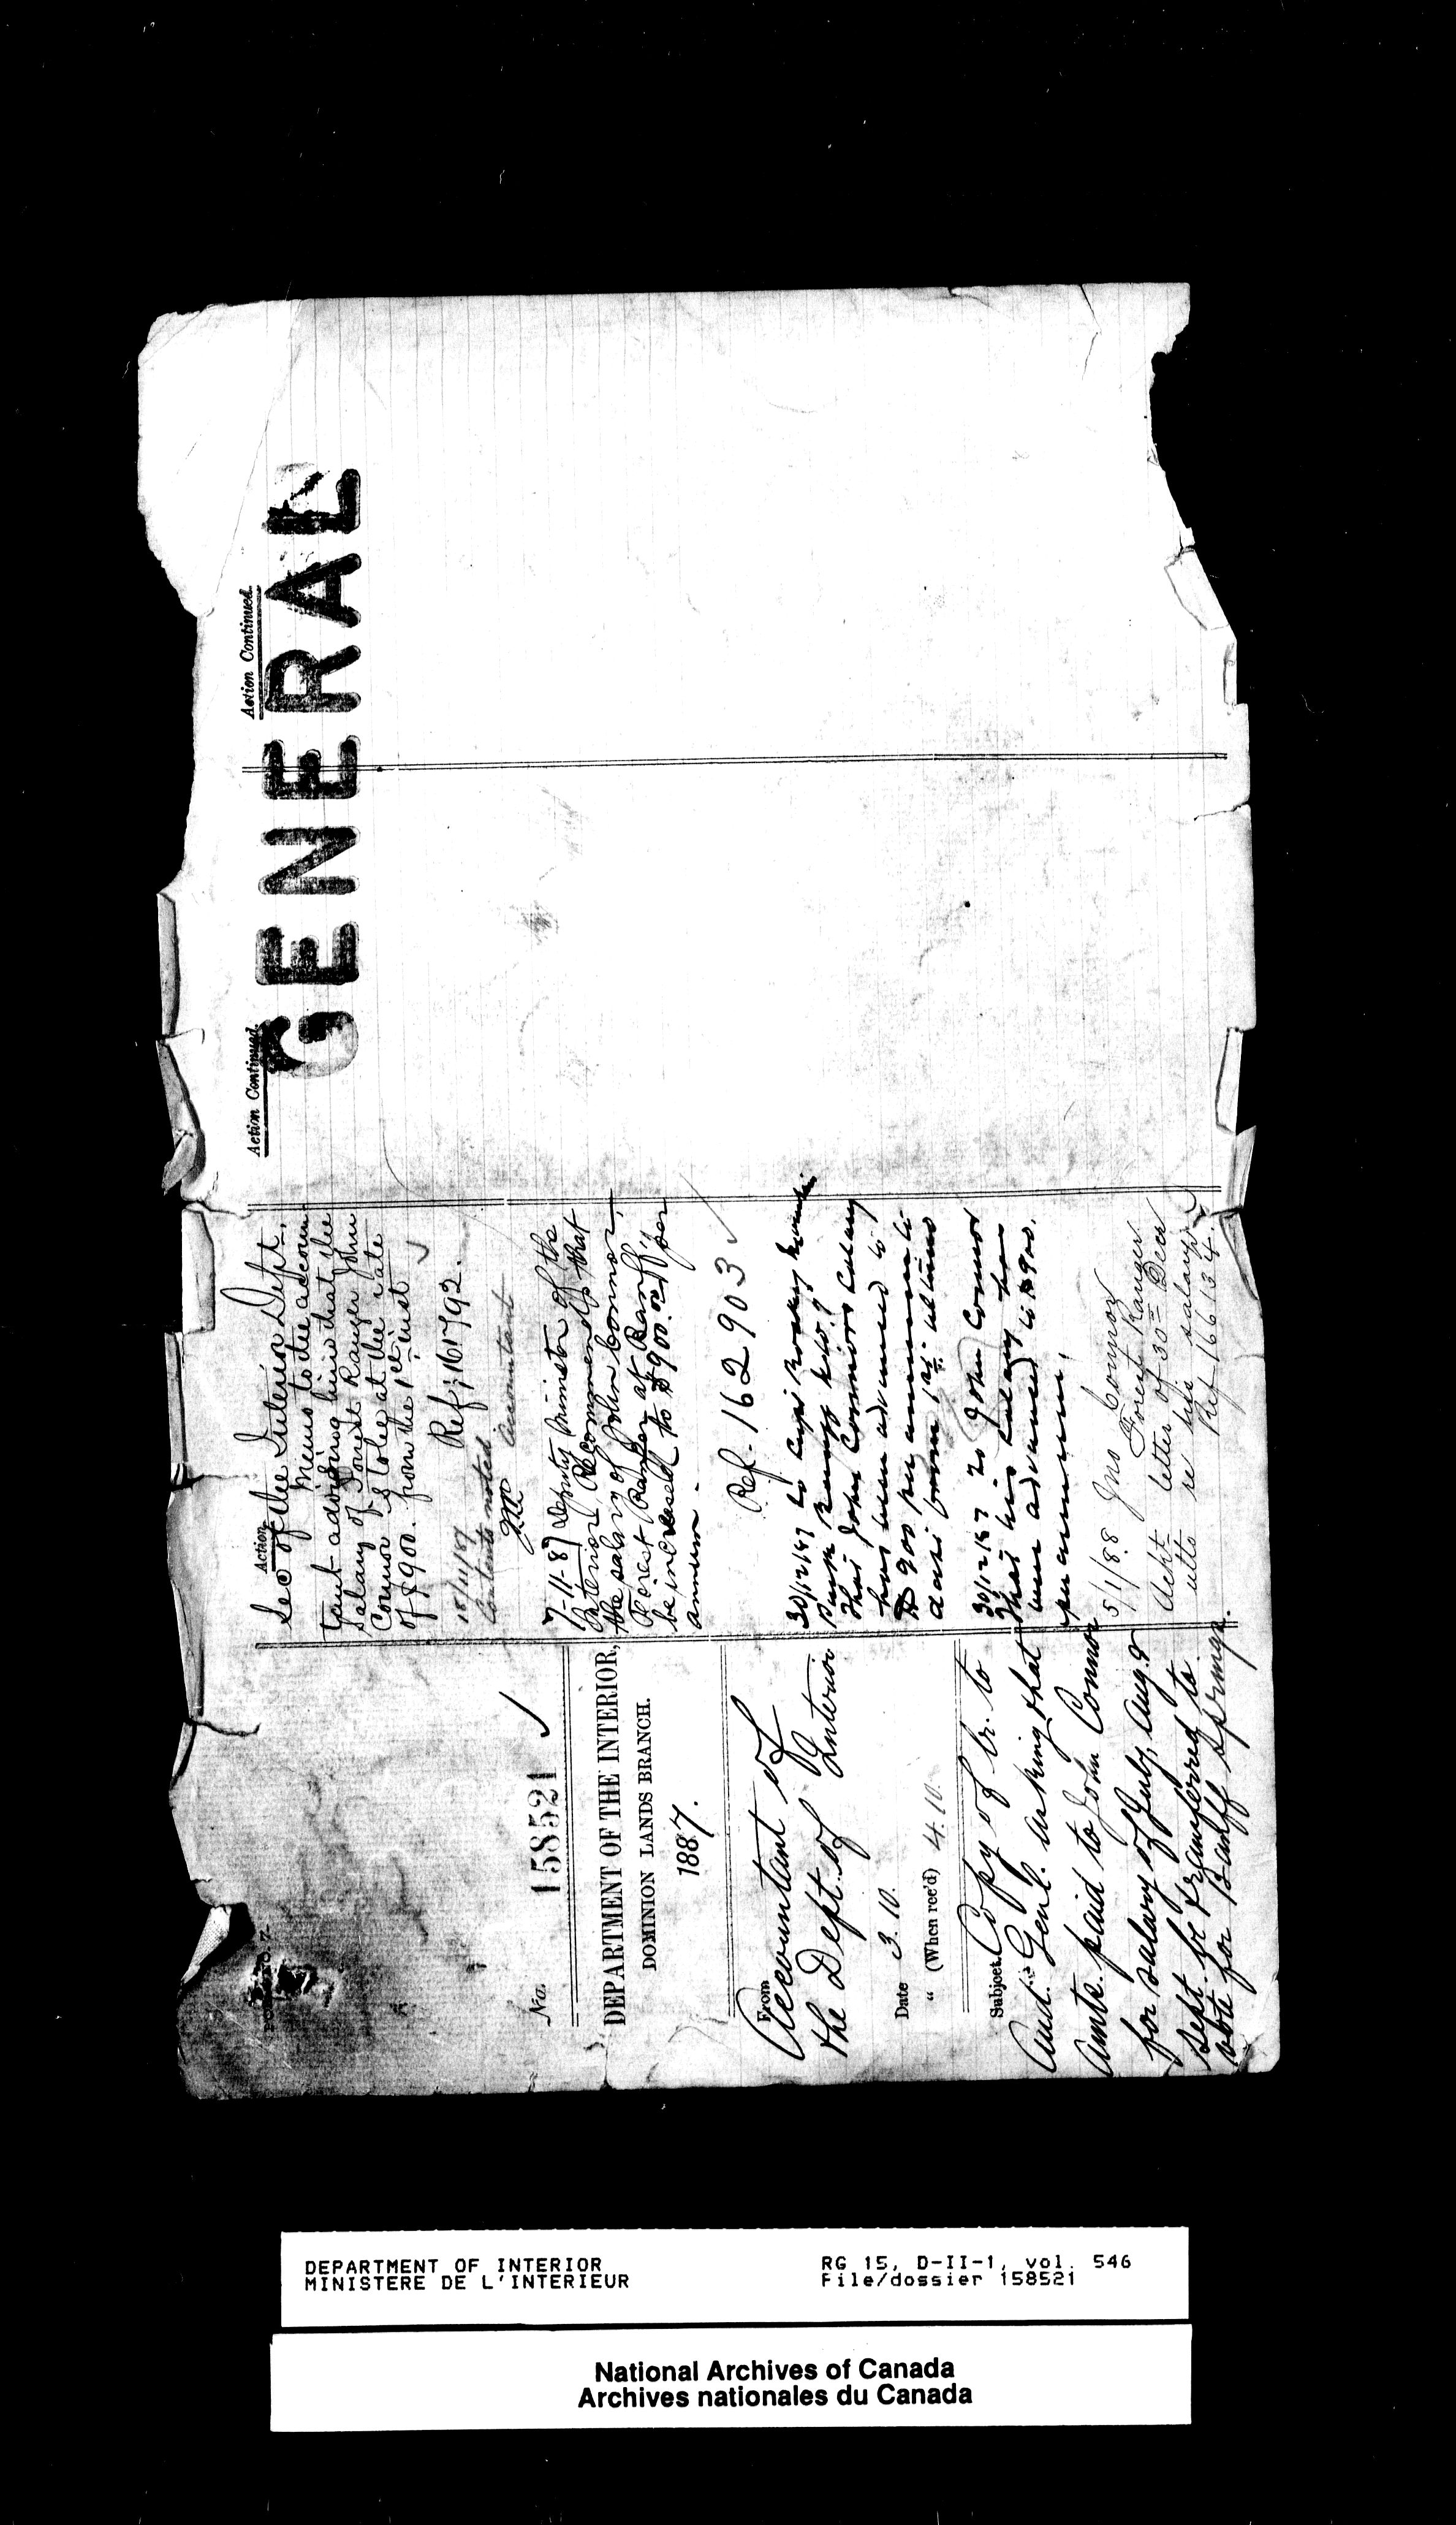 No. 158521
DEPARTMENT OF THE INTERIOR,
DOMINION LANDS BRANCH.
1887.
From
Accountant of
the Dept. of Interior
Date 3.10.
" (When rec'd) 4.10.
Subject. Copy of lr. to
Aud. Genl. asking that
Amts. paid to John Connor
for salary of July, Aug. &
Sept. be transferred to
vote for Banff Springs.
Action.
Sec of the Interior Dept.
Memo to the accoun-
tant advising him that the
salary of Forest Ranger John
Connor is to be at the rate
of $900. from the 1st inst
Ref; 161792.
15/11/87
Contents noted
Accountant
7-11-87 Deputy Minister of the
Interior Recommends that
the salary of John Connor,
Forest Ranger at Banff,
be increased to $900.00 per
annum.
Ref. 162903
30/12/87 to Supt Rocky Mountn
Park Banff
that John Connors salary
has been advanced to
$900 per annum
from 1st ultimo
30/12/87 To John Connor
that his salary has
been advanced to $900.
per annum.
5/1/88 Jno Connor
Forest Ranger
Ackt letter of 30th Decr
ulto re his salary
Ref 166134.
Action Continued.
Action Continued.
GENERAL
DEPARTMENT OF INTERIOR
MINISTERE DE L'INTERIEUR
RG 15, D-II-1, vol. 546
File/dossier 158521
National Archives of Canada
Archives nationales du Canada